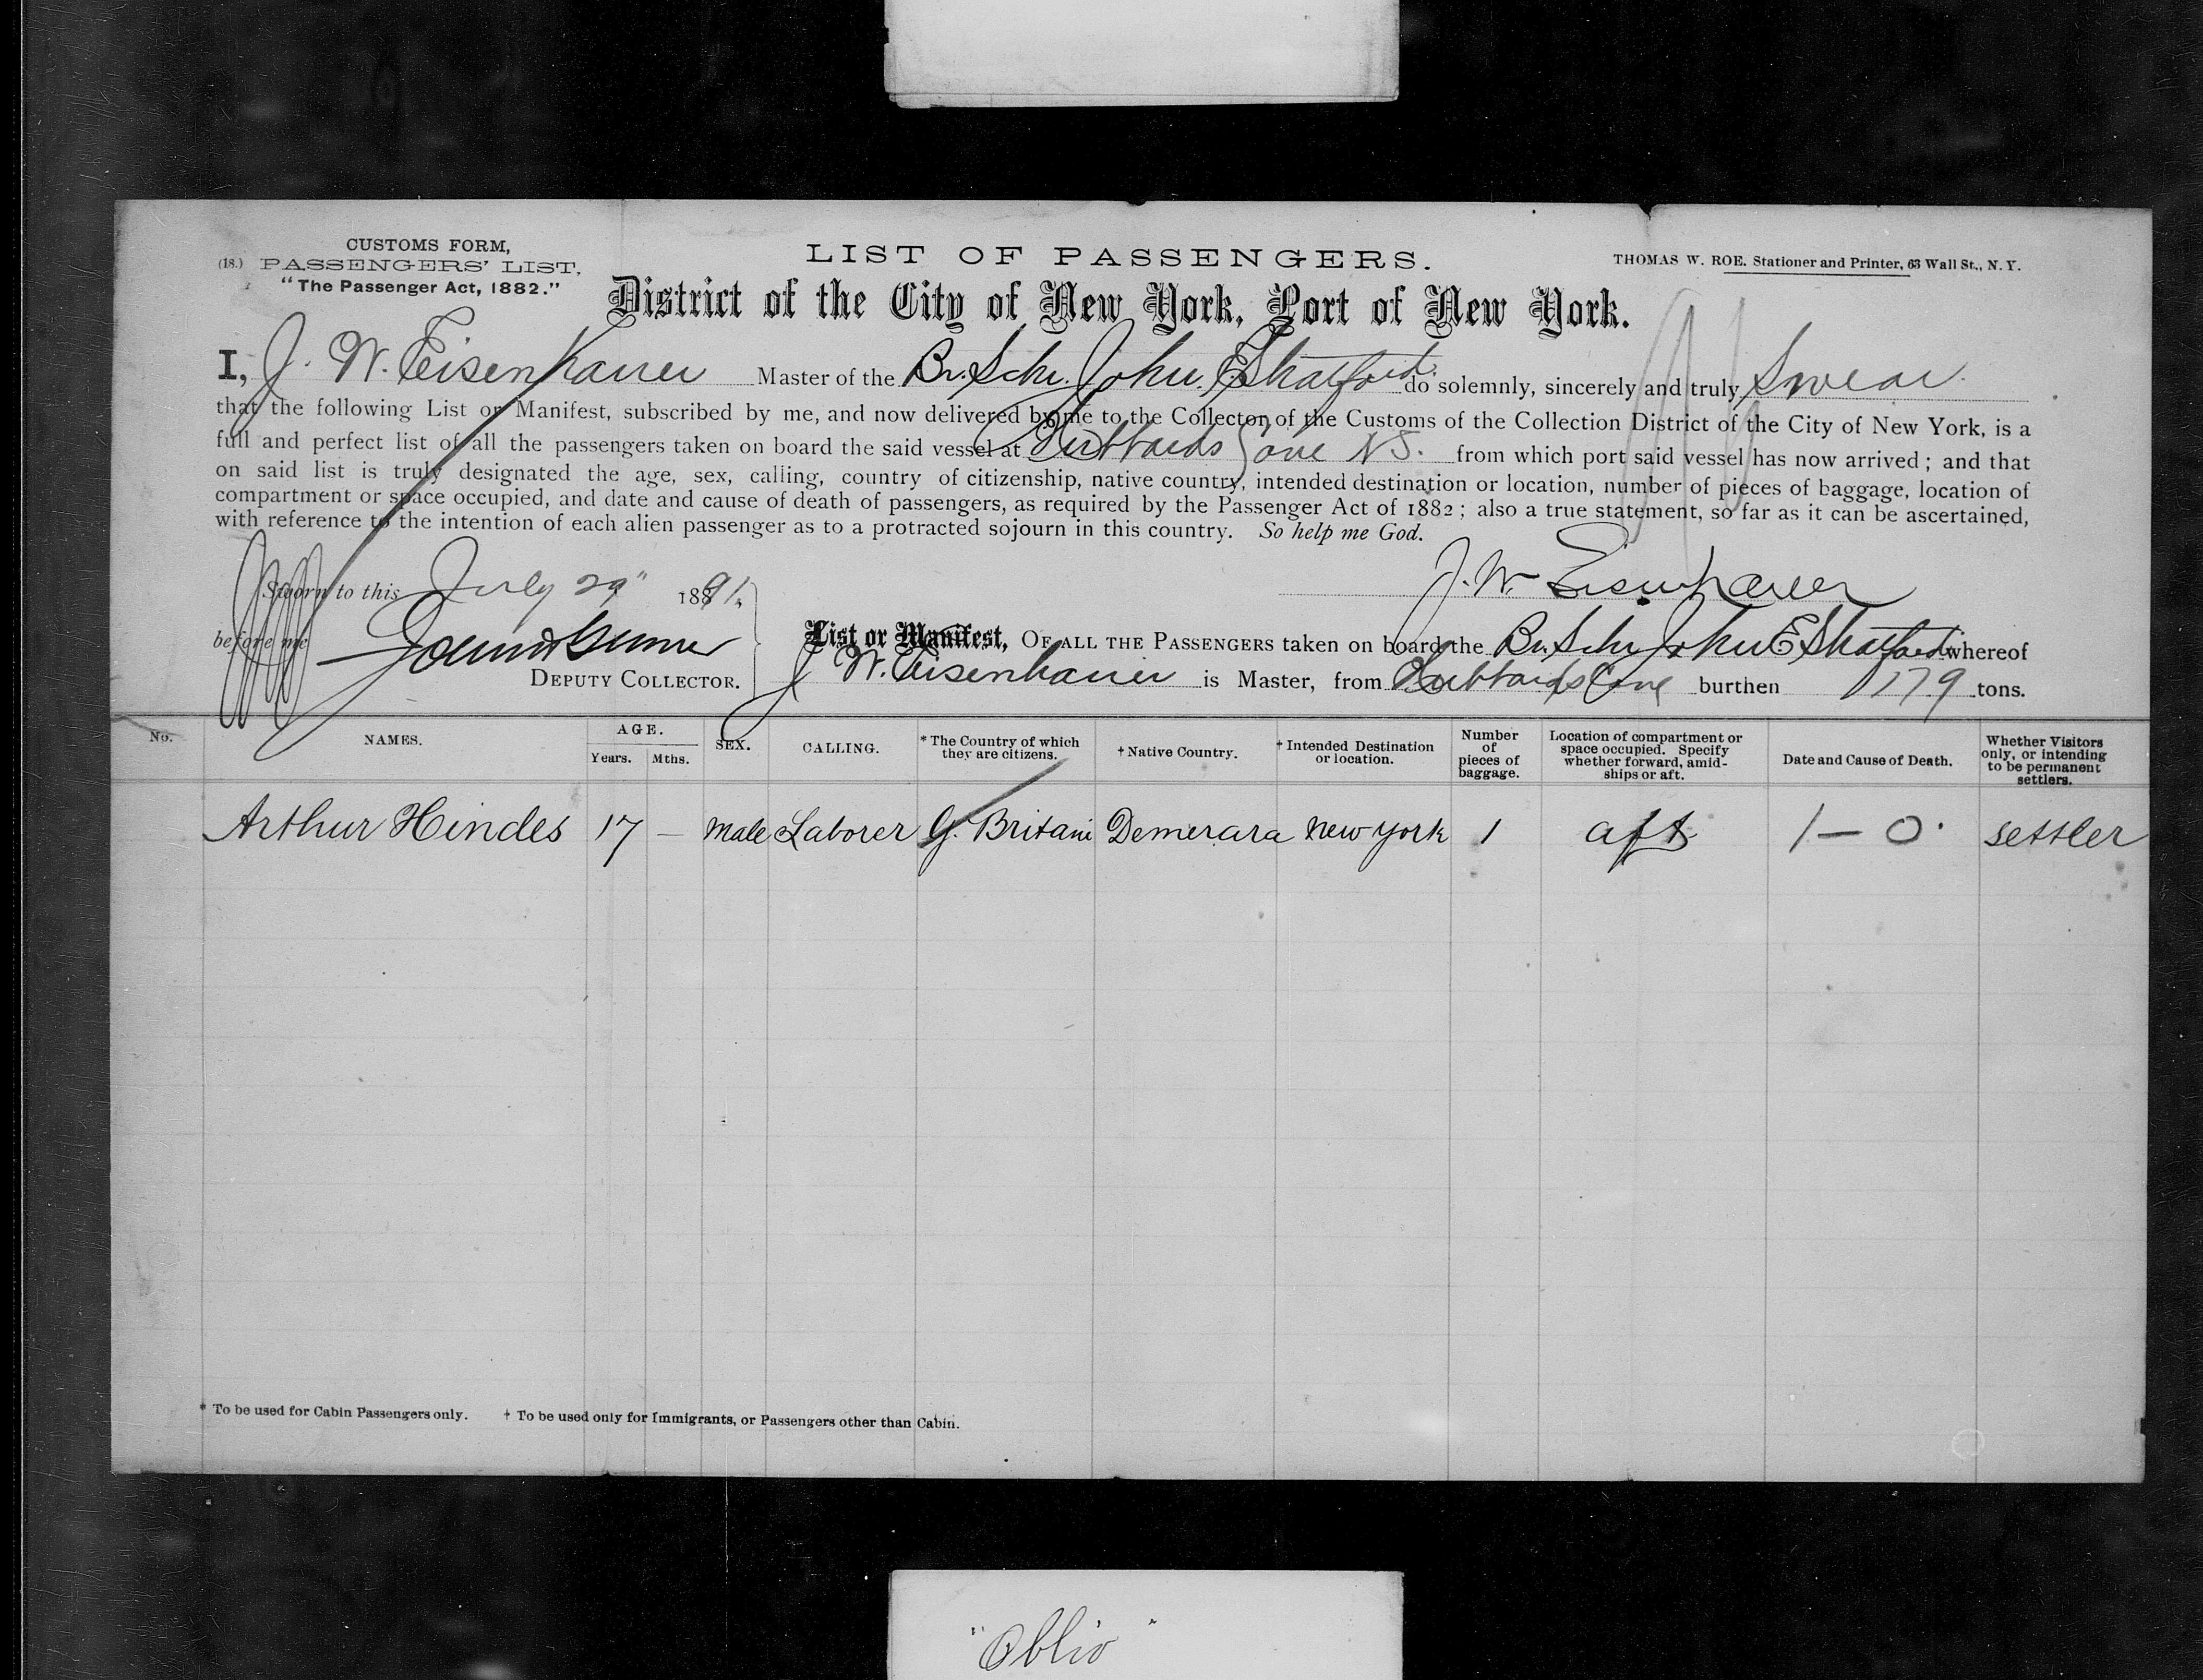 CUSTOMS FORM,
(18.) PASSENGERS' LIST,
"The Passenger Act, 1882."
LIST OF PASSENGERS.
THOMAS W. ROE. Stationer and Printer, 63 Wall St., N. Y.
District of the City of New York, Port of New York.
I, J. W. Eisenhauer Master of the Br. Schr. John E Shatford do solemnly, sincerely and truly Swear
that the following List or Manifest, subscribed by me, and now delivered by me to the Collector of the Customs of the Collection District of the City of New York, is a
full and perfect list of all the passengers taken on board the said vessel at Hubbards Cove N.S. from which port said vessel has now arrived; and that
on said list is truly designated the age, sex, calling, country of citizenship, native country, intended destination or location, number of pieces of baggage, location of
compartment or space occupied, and date and cause of death of passengers, as required by the Passenger Act of 1882; also a true statement, so far as it can be ascertained,
with reference to the intention of each alien passenger as to a protracted sojourn in this country. So help me God.
Sworn to this July 29" 1891.
J. W. Eisenhauer
before me
DEPUTY COLLECTOR.
List or Manifest, OF ALL THE PASSENGERS taken on board the Br. Schr John E Shatford whereof
J W. Eisenhauer is Master, from Hubbards Cove burthen 179 tons.
No. NAMES. AGE. Years. Mths. SEX. CALLING. * The Country of which they are citizens. † Native Country. † Intended Destination or location. Number of pieces of baggage. Location of compartment or space occupied. Specify whether forward, amid-ships or aft. Date and Cause of Death. Whether Visitors only, or intending to be permanent settlers.
Arthur Hindes 17 — Male Laborer G. Britain Demerara New York 1 aft 1 — 0 settler
* To be used for Cabin Passengers only. † To be used only for Immigrants, or Passengers other than Cabin.
"Oblio"